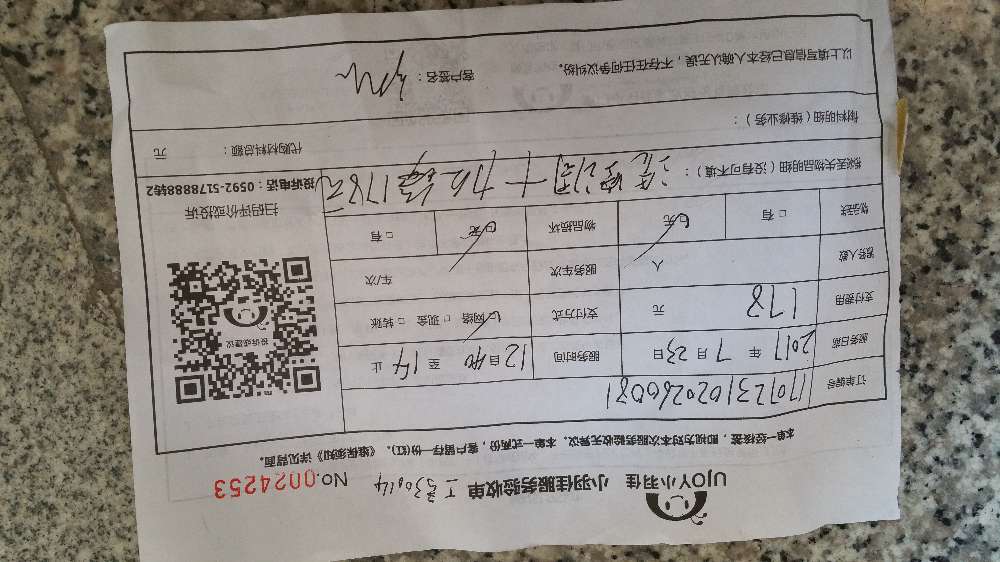 UJOY小羽佳 小羽佳服务验收单 工号30614 No.0024253
本单一经核签，即视为对本次服务验收无异议。本单一式两份，客户留存一份(红)。《维保须知》详见背面。
订单编号 1707231020260081
服务日期 2017 年 7 月 23 日 服务时间 12 自 40 至 14 止
支付费用 178 元 支付方式 □ 网络 □ 现金 □ 转账
服务人数 人 服务车次 车/次
物品丢失 □ 有 □ 无 物品损坏 □ 无 □ 有
投诉或建议
扫码评价或投诉
投诉电话：0592-5178888转2
损丢失物品明细（没有可不填）：
178元
材料明细（维修业务）：
代购材料总额： 元
以上填写信息已经本人确认无误，不存在任何争议纠纷。
客户签名：